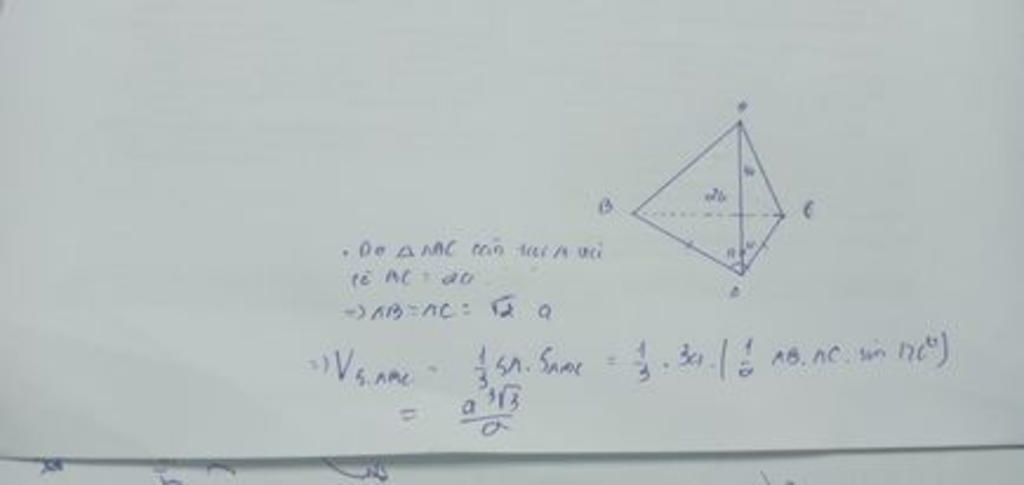 S
B
C
A
. Do △ABC cân tại A và
có BC = 2a
=> AB = AC = √2 a
=> V S.ABC = 1/3 SA. S ABC = 1/3 . 3a . ( 1/2 AB. AC. sin
= a³√3 / 2